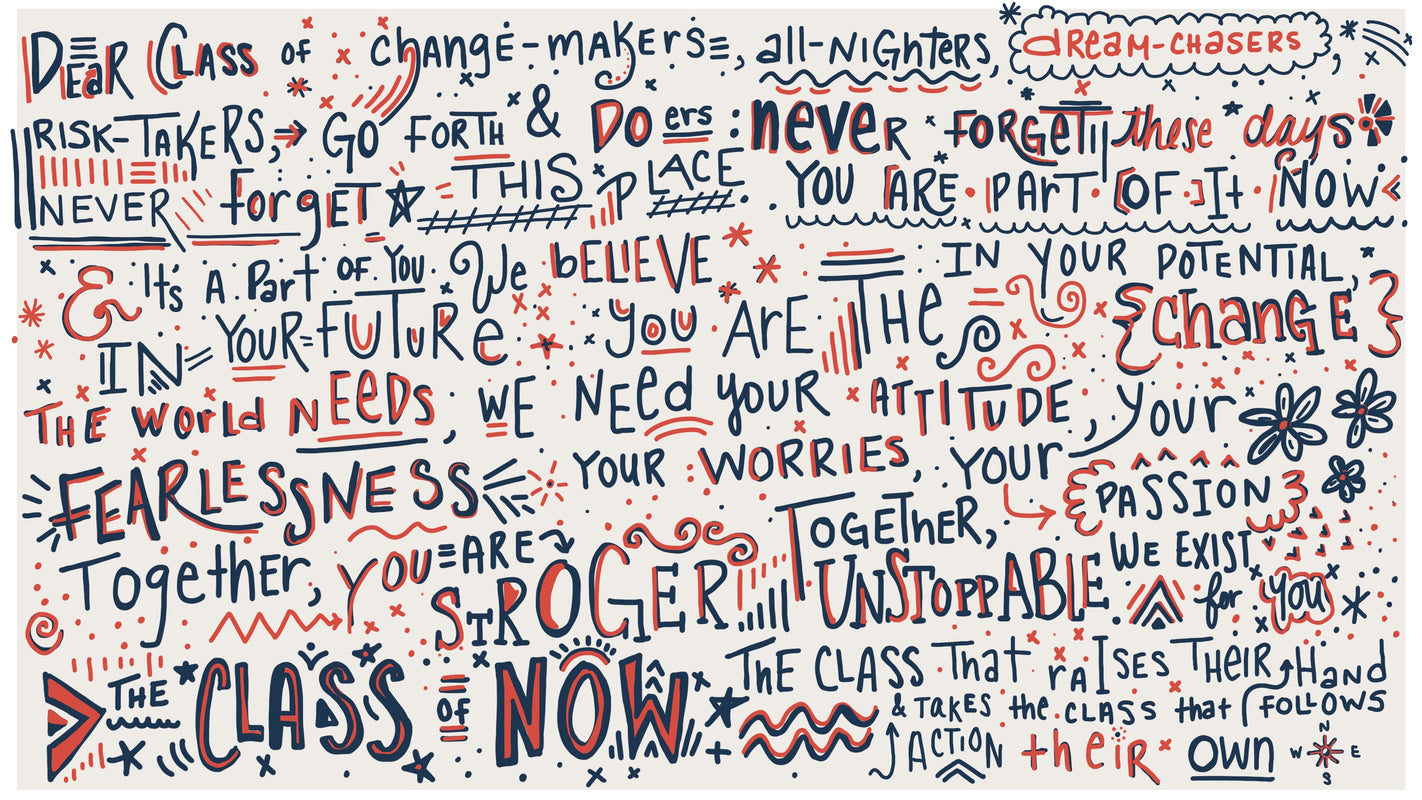 DEaR CLASS OF change-makers, all-NiGHTERS, dReam-CHASERS,
RISK-TAKERS, GO FORTH & DOers: never FORGET these days
NEVER ForgET THIS PLACE. YOU ARE PArT OF It NOW
& It's A Part OF YOU. We bELiEVE IN YOUR POTENTIAL,
IN YOUR FUTURe you ArE THe {ChanGE}
THE WOrld NEeDS, WE NEed yOUR ATTITUDE, your
FEARLESSNESS YOUR WORRIES, YOUR PASSION
Together, YOU ARE STROGER TOGETHER, UNSTOPPABLE WE EXIST for you
THE CLASS OF NOW THE CLASS That raISES THEIR Hand
& TAKES the CLASS that FOLLOWS
ACTiON theiR OWN
N
W E
S